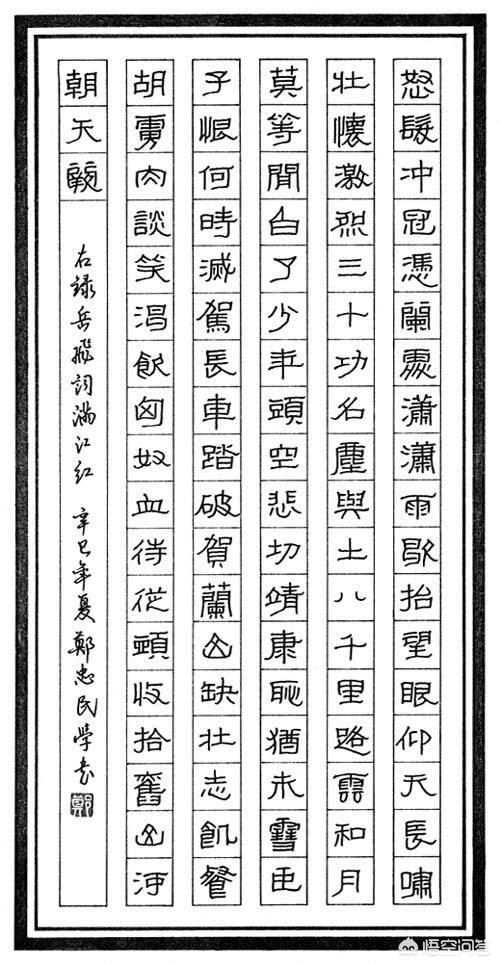 怒髮冲冠憑闌處瀟瀟雨歇抬望眼仰天長嘯
壯懷激烈三十功名塵與土八千里路雲和月
莫等閒白了少年頭空悲切靖康恥猶未雪臣
子恨何時滅駕長車踏破賀蘭山缺壯志飢餐
胡虜肉談笑渴飲匈奴血待從頭收拾舊山河
朝天闕
右録岳飛詞滿江紅 辛巳年夏鄭忠民學書
鄭
悟空问答